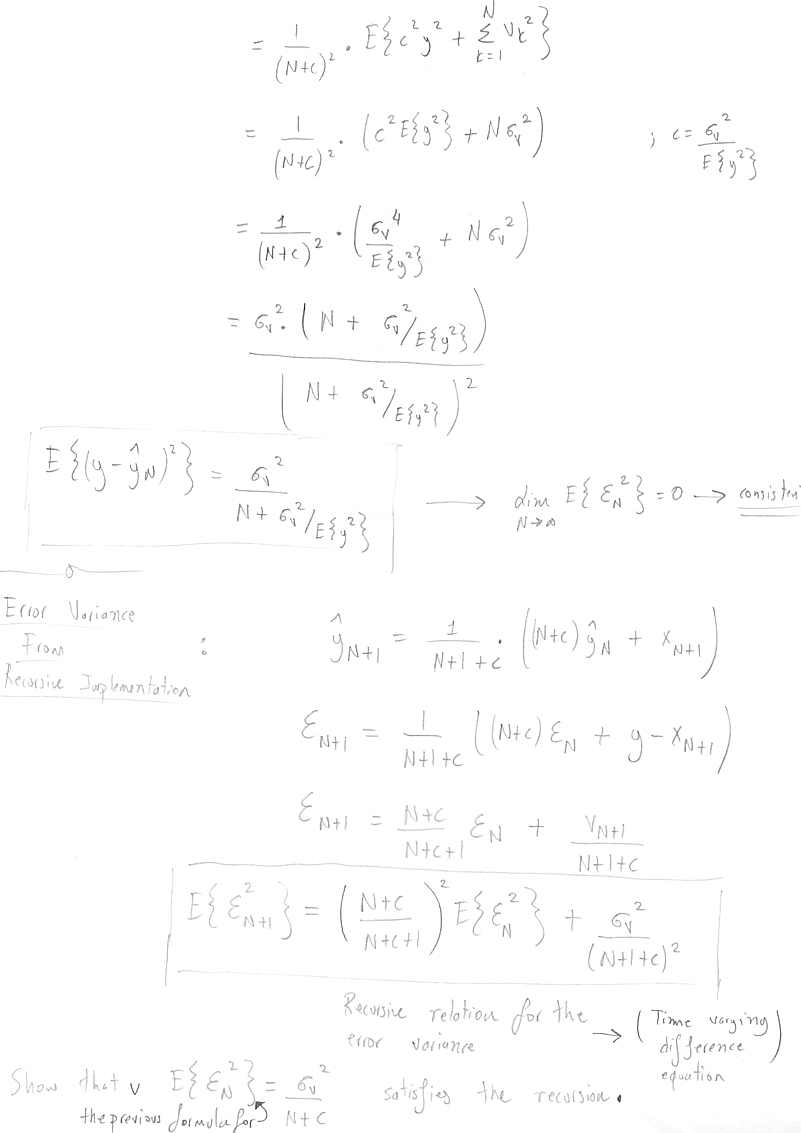 = 1/(N+C)² · E{c²y² + Σ_{k=1}^{N} V_k²}
= 1/(N+C)² · (c² E{y²} + N σ_v²) ; c = σ_v²/E{y²}
= 1/(N+C)² · (σ_v⁴/E{y²} + N σ_v²)
= σ_v² · (N + σ_v²/E{y²})
(N + σ_v²/E{y²})²
E{(y-ŷ_N)²} = σ_v²/(N + σ_v²/E{y²}) → lim_{N→∞} E{ε_N²} = 0 →
Error Variance
From
Recursive Implementation
:
ŷ_{N+1} = 1/(N+1+c) · ((N+c) ŷ_N + x_{N+1})
ε_{N+1} = 1/(N+1+c) ((N+c) ε_N + y - x_{N+1})
ε_{N+1} = (N+c)/(N+c+1) ε_N + V_{N+1}/(N+1+c)
E{ε²_{N+1}} = ((N+c)/(N+c+1))² E{ε²_N} + σ_v²/(N+1+c)²
Recursive relation for the
error variance
→ (Time varying
difference
equation)
Show that v E{ε_N²} = σ_v²/(N+C) satisfies the recursion.
the previous formula for